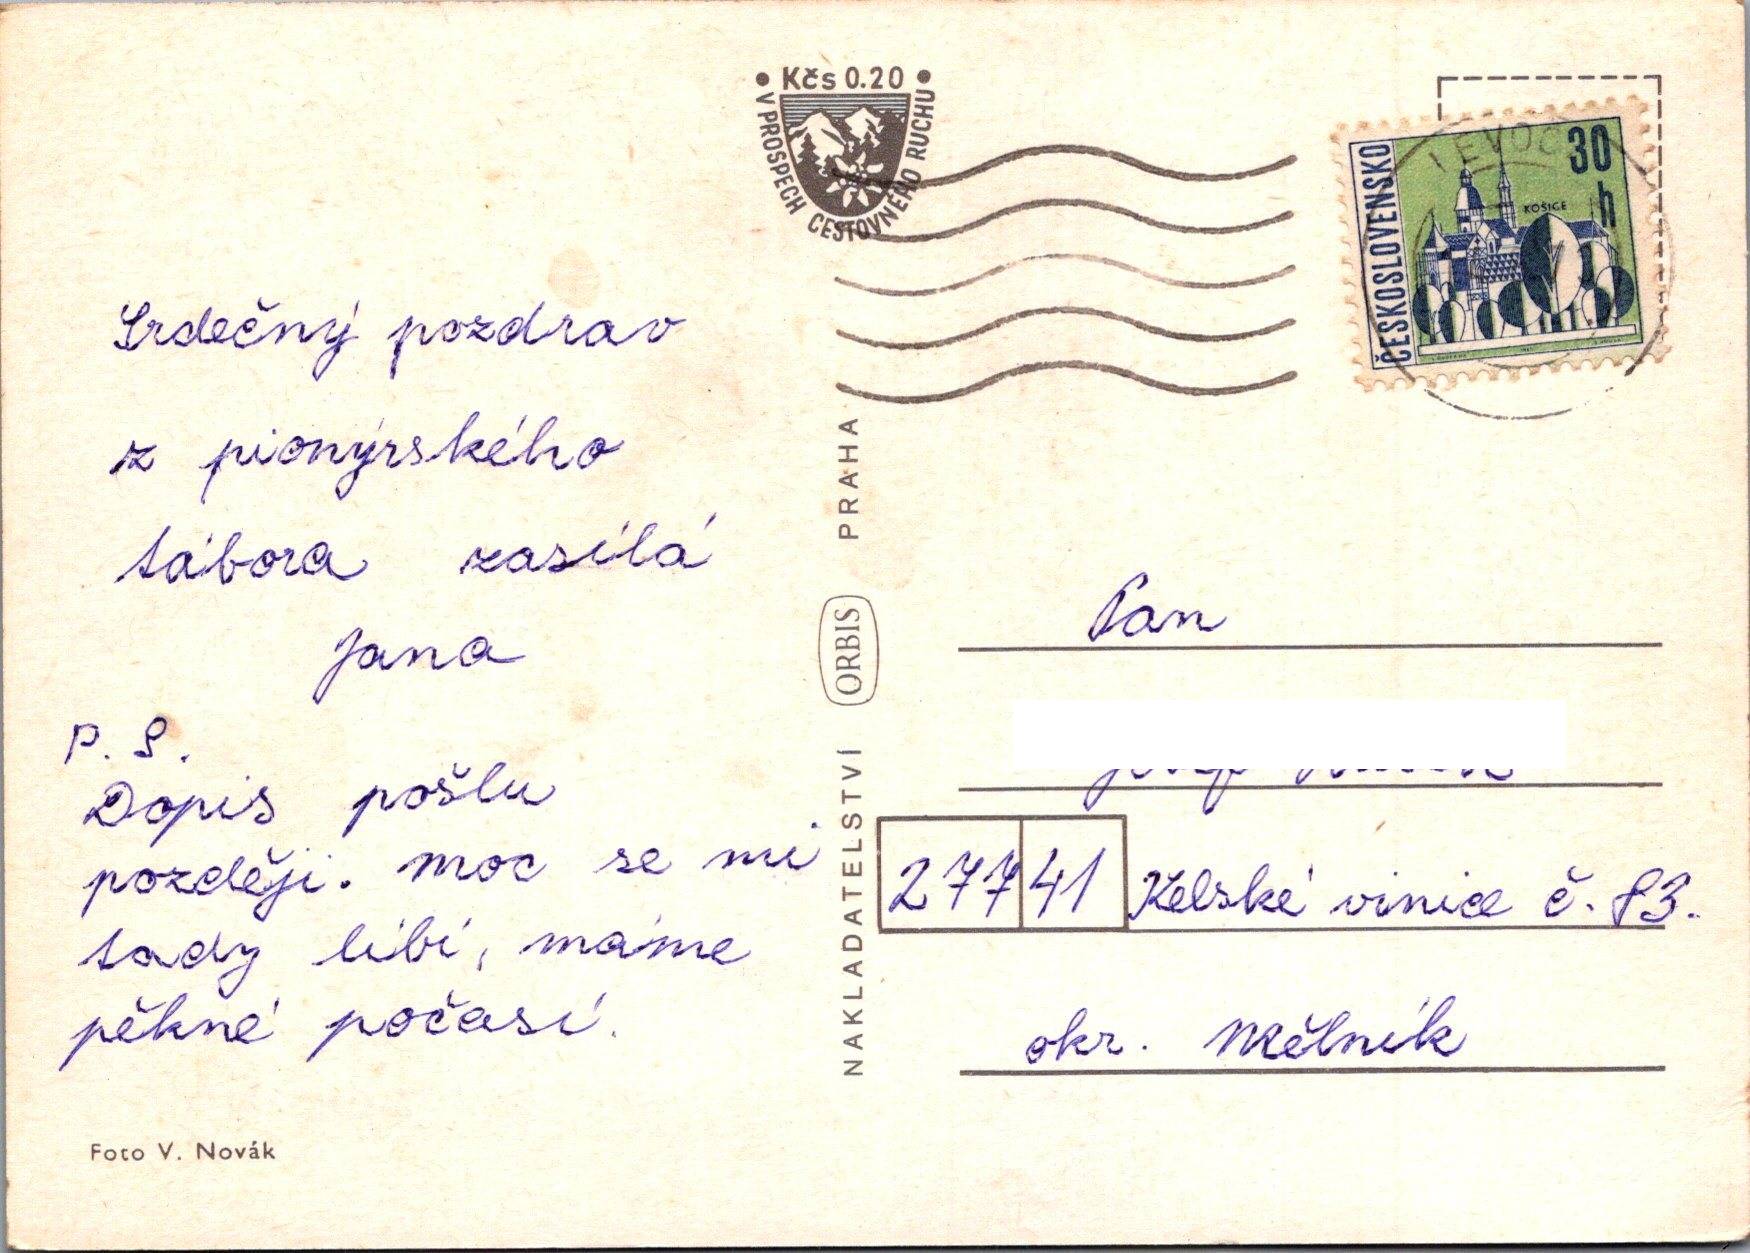 Kčs 0.20
V PROSPECH CESTOVNÉHO RUCHU
ČESKOSLOVENSKO
30
h
KOŠICE
LEVOČ
Srdečný pozdrav
z pionýrského
tábora zasílá
Jana
P. S.
Dopis pošlu
později. Moc se mi
tady líbí, máme
pěkné počasí.
Foto V. Novák
NAKLADATELSTVÍ ORBIS PRAHA
Pan
277 41 Kelské vinice č. 83.
okr. Mělník